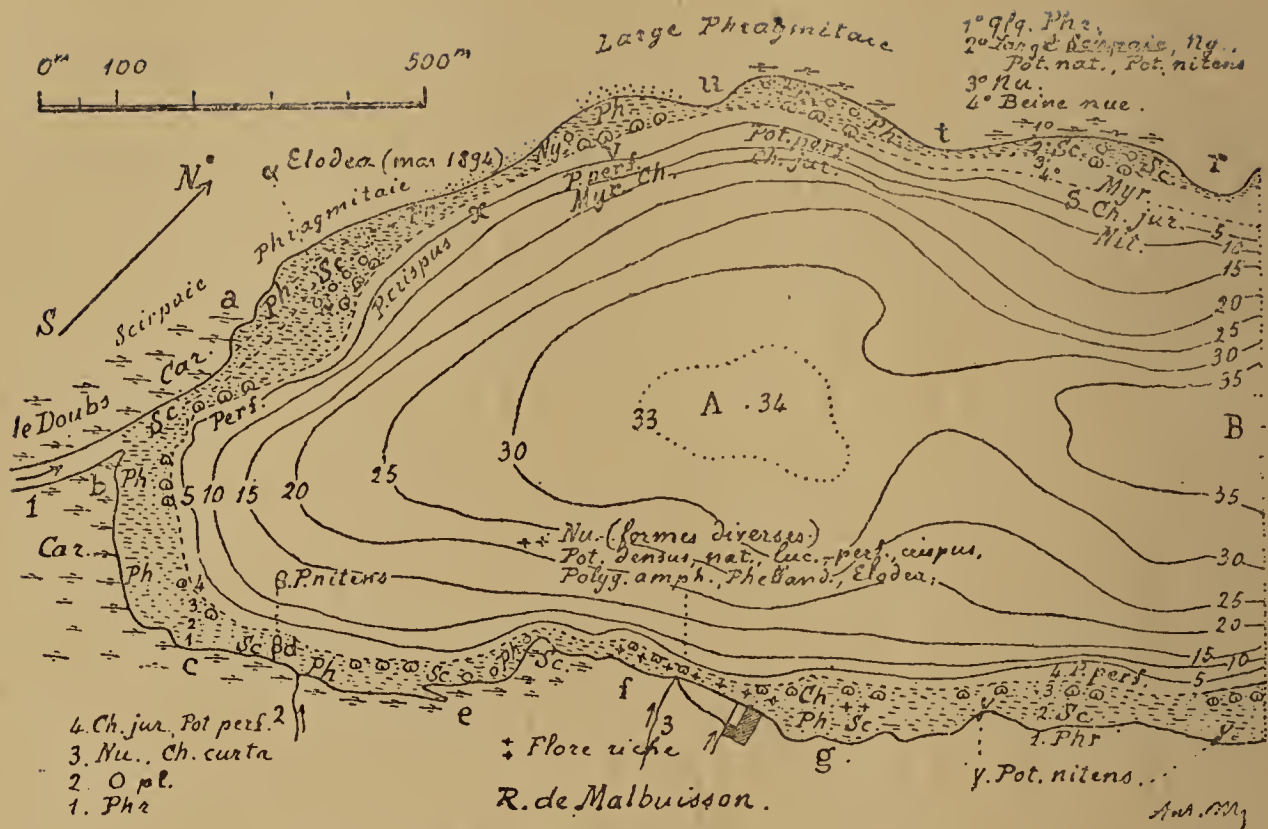 Large Phragmitaie
0m 100 500m
1° qlq. Phr.
2° Large Scirpaie, Ny..
Pot. nat., Pot. nitens
3° Nu.
4° Beine nue.
N
S
α Elodea (mai 1894)
Phragmitaie
Scirpaie
a
Car.
le Doubs
1
b
Car.
Ph
Sc
Ph
Sc
Perf.
P. crispus
x
Ny
Ph
V
u
Ph
t
r
1°
2. Sc Sc
3°
4°
P. perf.
Myr. Ch.
Pot. perf.
Ch. jur.
Myr.
S. Ch. jur.
Nit.
5
10
15
20
25
30
35
33 A . 34
B
35
30
25
20
15
10
5
5 10 15 20 25 30
Nu. (formes diverses)
Pot. densus, nat., luc., perf., crispus,
Polyg. amph., Phelland., Elodea.
β. P. nitens
Ph
Ph
4
3
2
1
c
Sc βd
Ph
Sc
Ph
Sc
e
f
Ch
Ph Sc
g.
4. P. perf.
3
2. Sc
1. Phr
γ
γ
γ. Pot. nitens
4. Ch. jur, Pot perf.
3. Nu., Ch. curta
2. O pl.
1. Phr
2
Flore riche
3
R. de Malbuisson.